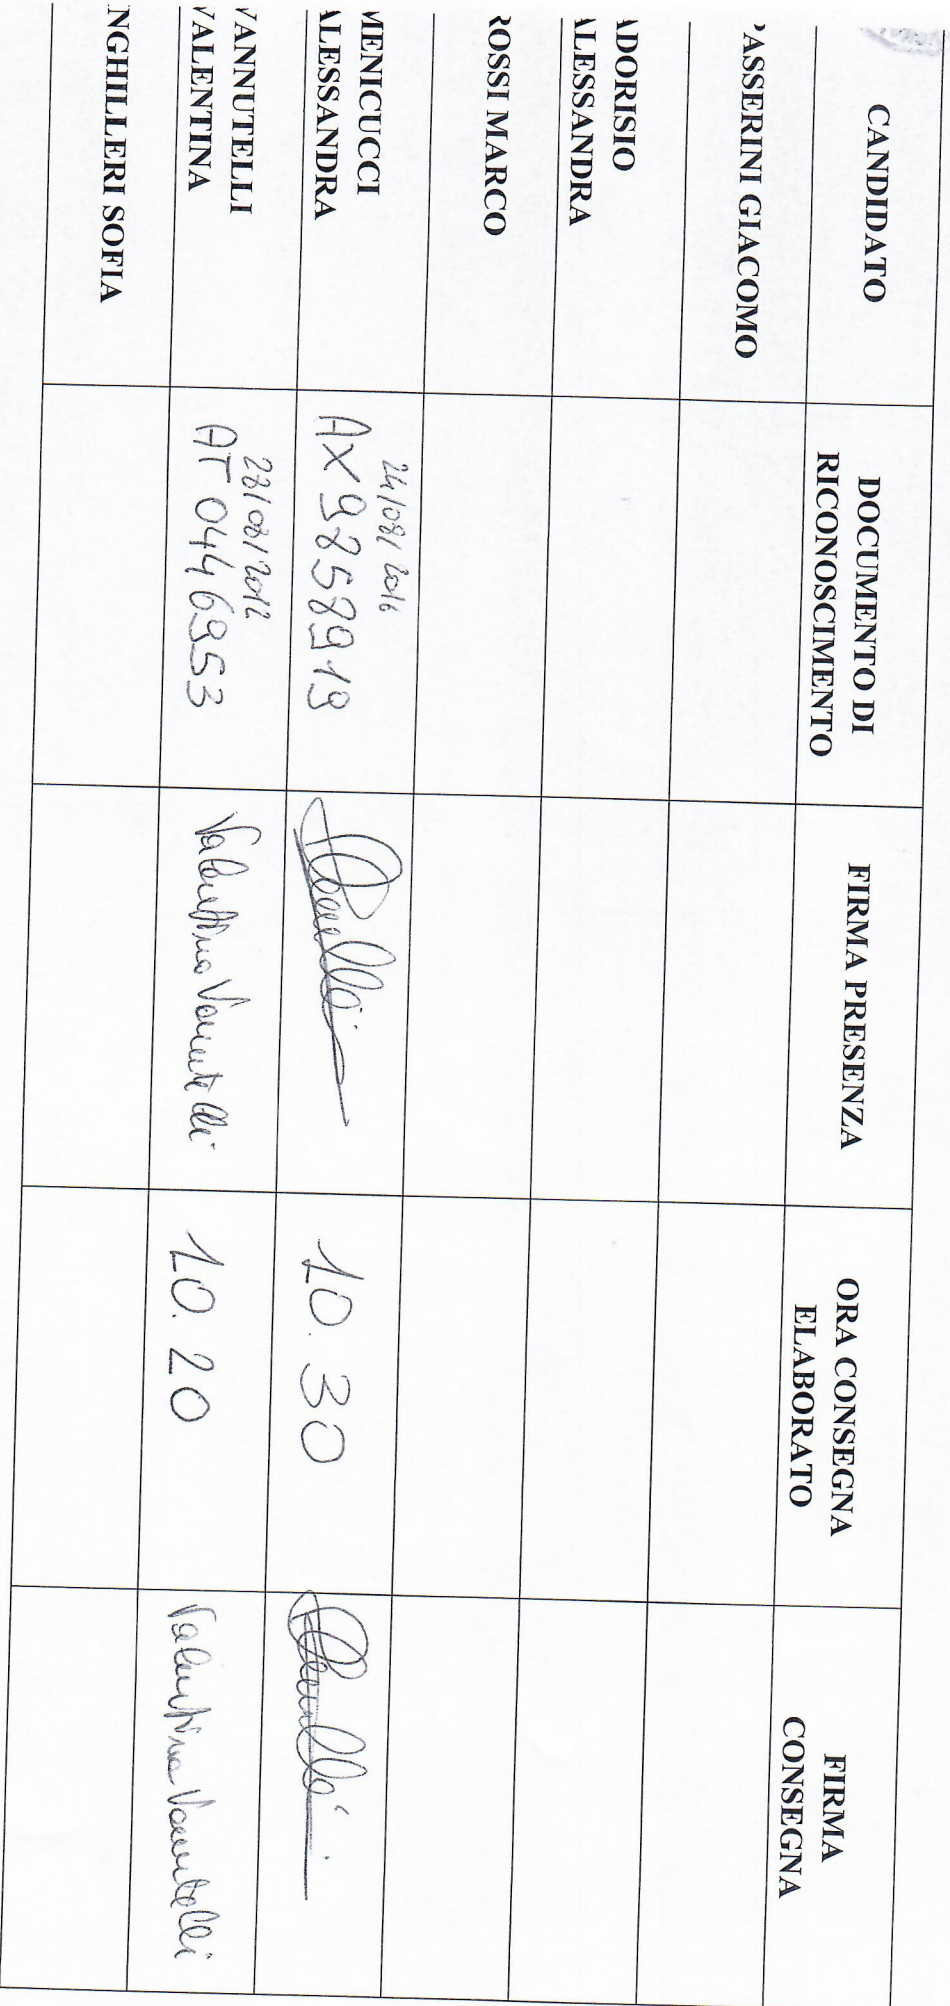 CANDIDATO
DOCUMENTO DI
RICONOSCIMENTO
FIRMA PRESENZA
ORA CONSEGNA
ELABORATO
FIRMA
CONSEGNA
PASSERINI GIACOMO
ADORISIO
ALESSANDRA
ROSSI MARCO
MENICUCCI
ALESSANDRA
24/08/2016
AX9258919
10.30
VANNUTELLI
VALENTINA
23/08/2012
AT0446953
Valentina Vannutelli
10.20
Valentina Vannutelli
NGHILLERI SOFIA